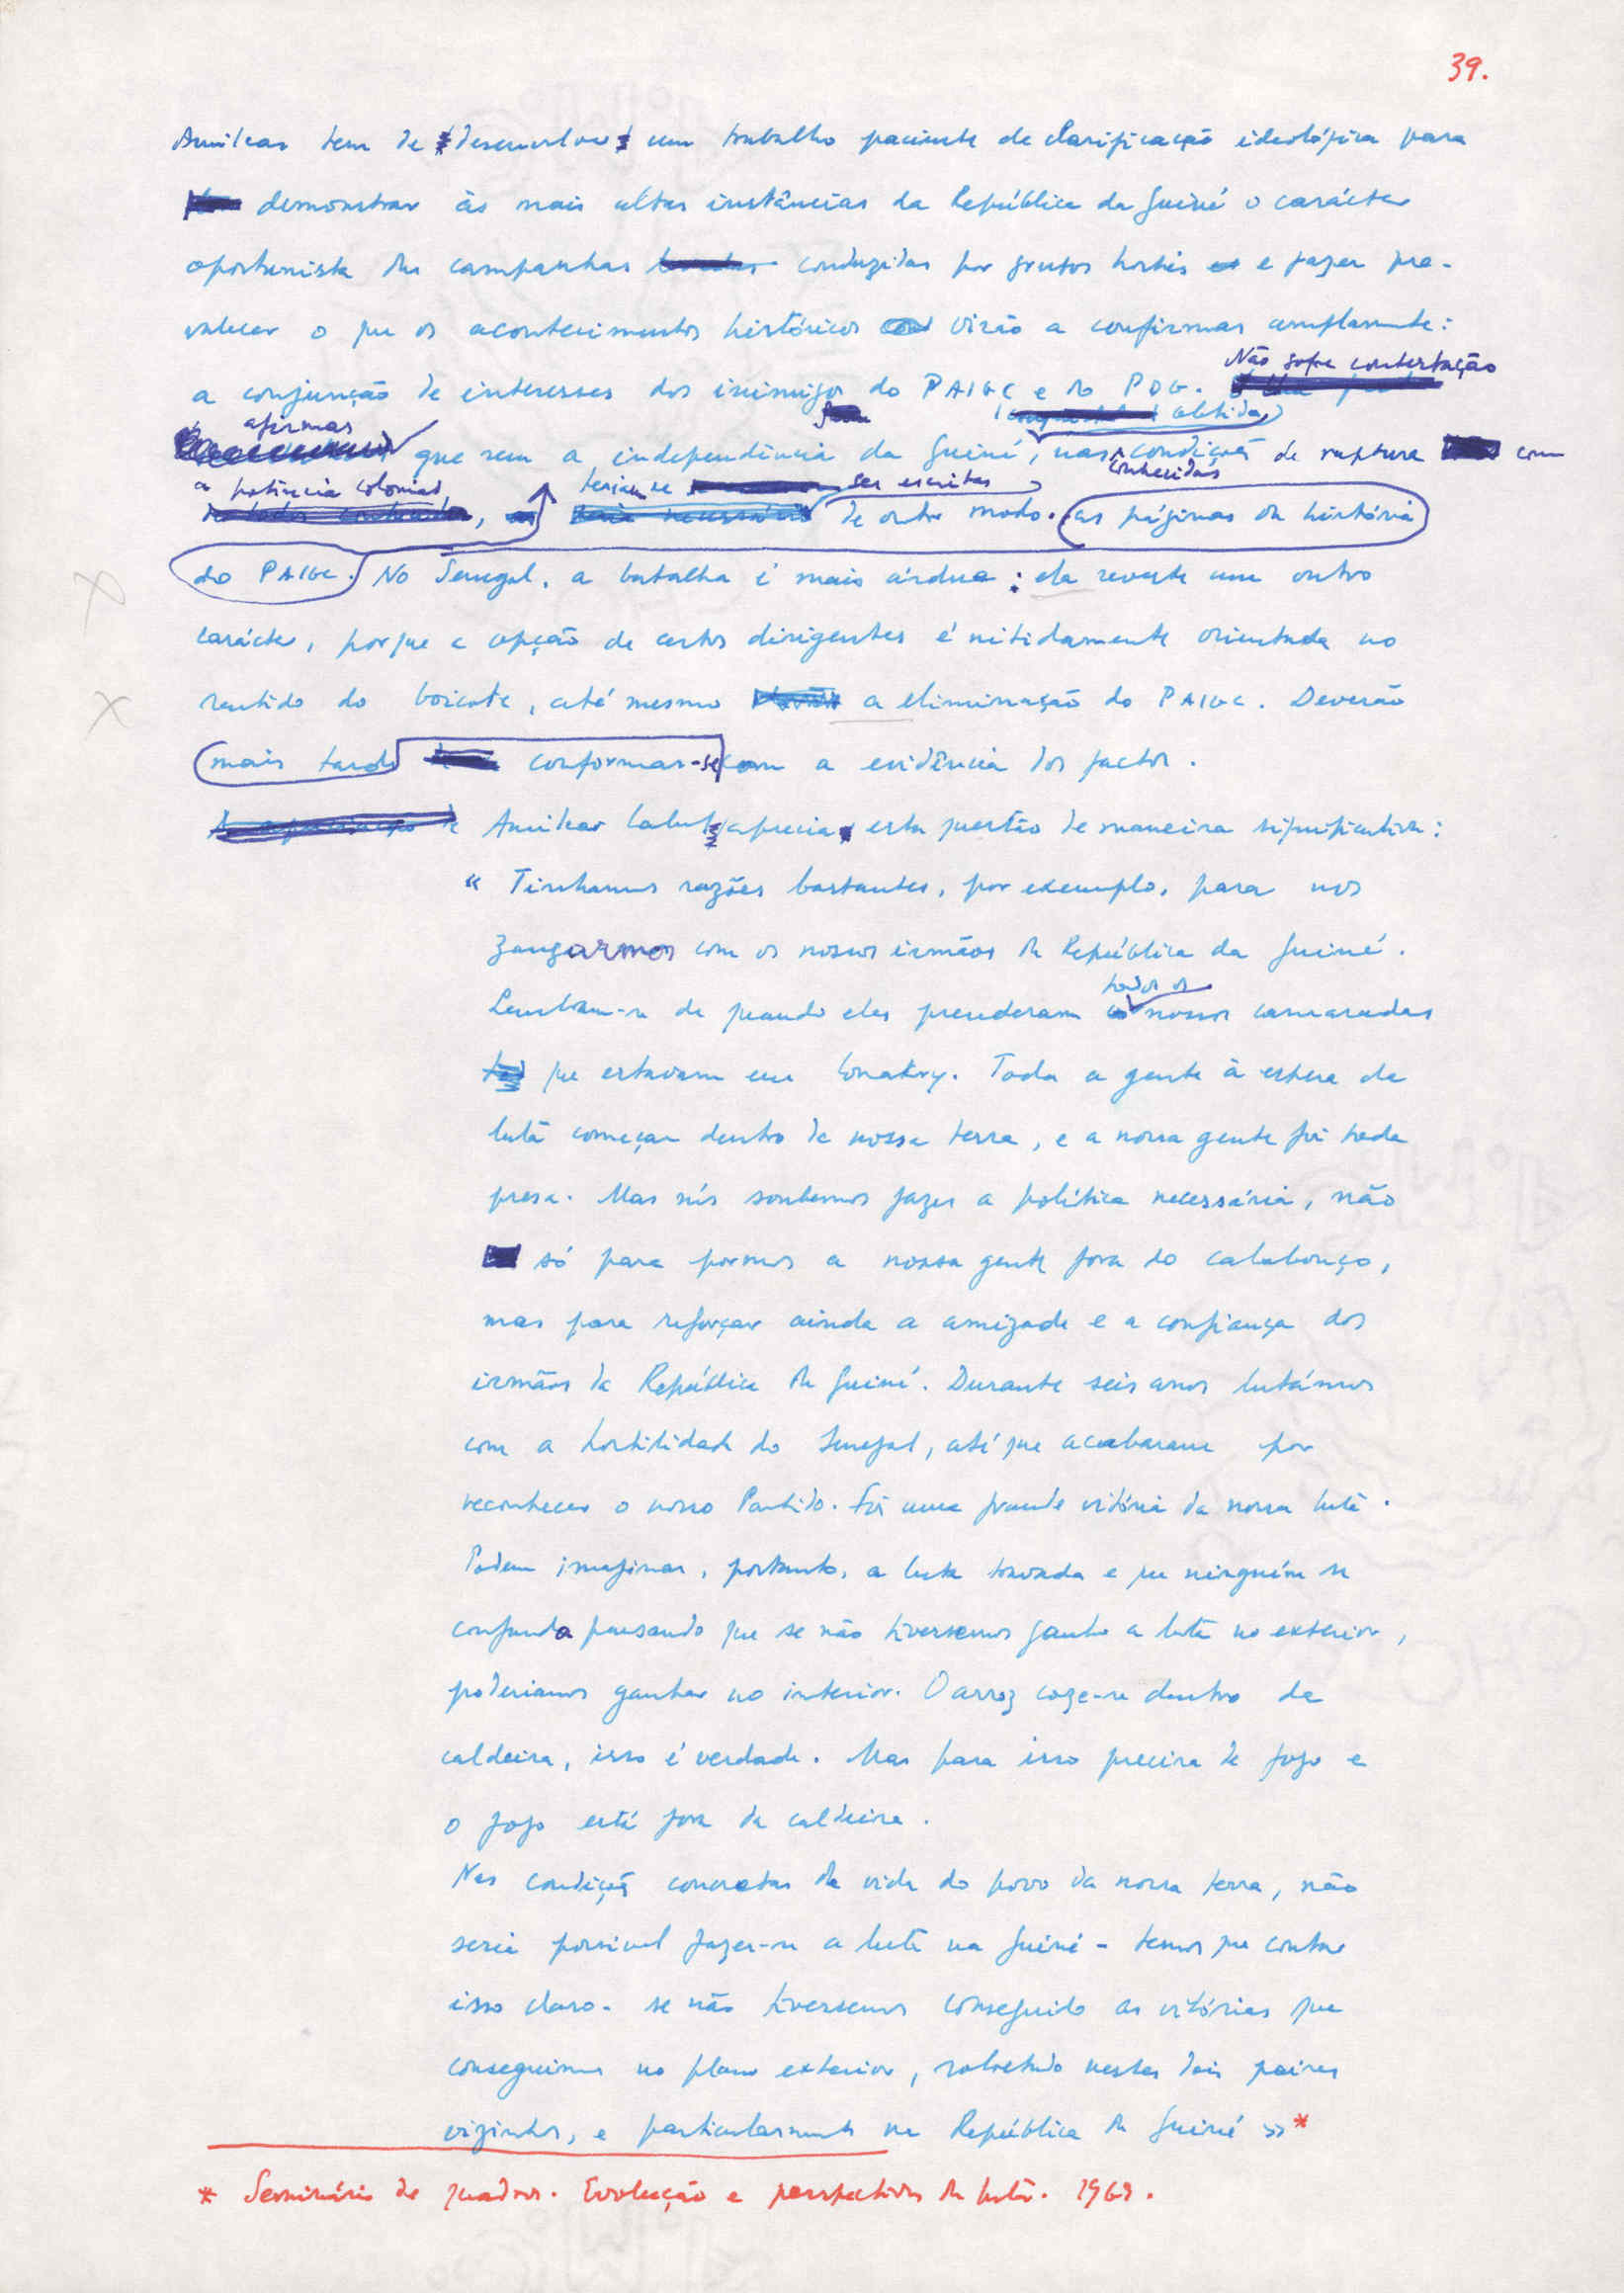 39.
Amílcar tem de desenvolver um trabalho paciente de clarificação ideológica para
demonstrar às mais altas instâncias da República da Guiné o carácter
oportunista das campanhas conduzidas por grupos hostis e fazer pre-
valecer o que os acontecimentos históricos virão a confirmar amplamente:
Não sofre contestação
a conjunção de interesses dos inimigos do PAIGC e do PDG.
afirmar obtida
que sem a independência da Guiné, nas condições de ruptura com
conhecidas
a potência colonial, teriam de ser escritas
de outro modo. as páginas da história
do PAIGC. No Senegal, a batalha é mais árdua: ela reveste um outro
carácter, porque a opção de certos dirigentes é nitidamente orientada no
sentido do boicote, até mesmo a eliminação do PAIGC. Deverão
mais tarde conformar-se com a evidência dos factos.
Amílcar Cabral aprecia esta questão de maneira significativa:
« Tínhamos razões bastantes, por exemplo, para nos
zangarmos com os nossos irmãos da República da Guiné.
todos os
Lembram-se de quando eles prenderam nossos camaradas
que estavam em Conakry. Toda a gente à espera da
luta começar dentro da nossa terra, e a nossa gente foi toda
presa. Mas nós soubemos fazer a política necessária, não
só para pormos a nossa gente fora do calabouço,
mas para reforçar ainda a amizade e a confiança dos
irmãos da República da Guiné. Durante seis anos lutámos
com a hostilidade do Senegal, até que acabaram por
reconhecer o nosso Partido. Foi uma grande vitória da nossa luta.
Podem imaginar, portanto, a luta travada e que ninguém se
confunda pensando que se não tivessemos ganho a luta no exterior,
poderiamos ganhar no interior. O arroz coze-se dentro da
caldeira, isso é verdade. Mas para isso precisa de fogo e
o fogo está fora da caldeira.
Nas condições concretas da vida do povo da nossa terra, não
seria possível fazer-se a luta na Guiné - temos que contar
isso claro - se não tivessemos conseguido as vitórias que
conseguimos no plano exterior, sobretudo nestes dois países
vizinhos, e particularmente na República da Guiné »*
* Seminário de quadros. Evolução e perspectivas da luta. 1969.